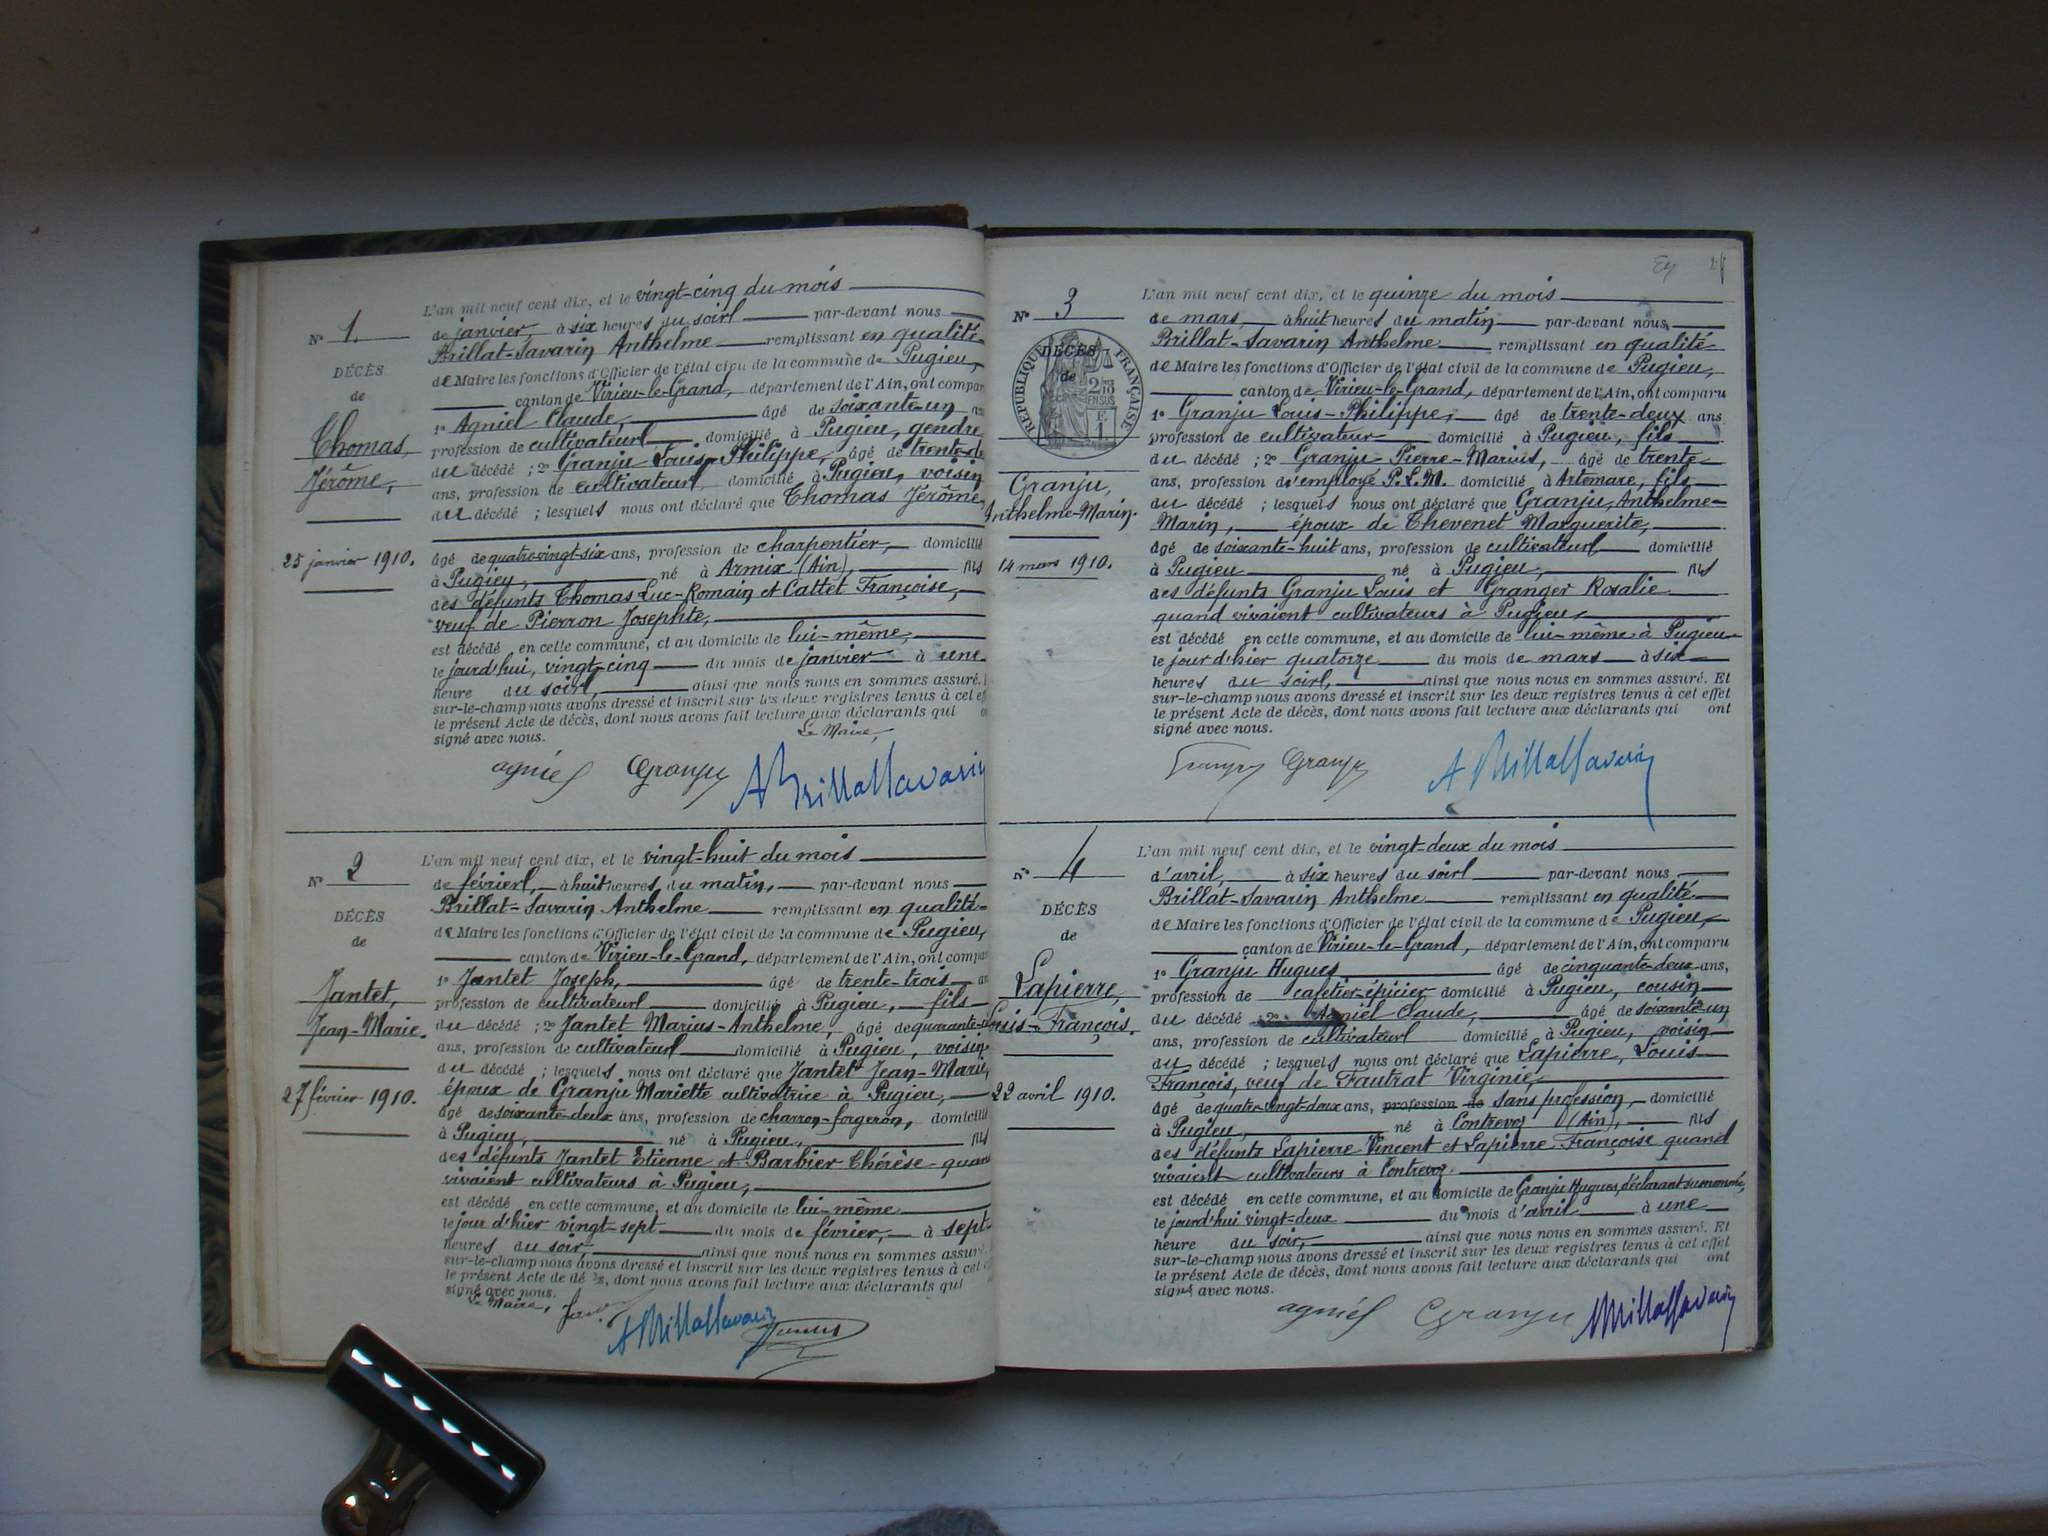 N° 1.
DÉCÈS
de
Thomas,
Jérôme,
25 janvier 1910.
L'an mil neuf cent dix, et le vingt-cinq du mois
de janvier, à six heures du soir par-devant nous
Brillat-Savarin Anthelme remplissant en qualité
de Maire les fonctions d'Officier de l'état civil de la commune de Pugieu,
canton de Virieu-le-Grand, département de l'Ain, ont compar
1° Agniel Claude, âgé de soixante-un
profession de cultivateur domicilié à Pugieu, gendre
du décédé ; 2° Granju Louis-Philippe, âgé de trente-d
ans, profession de cultivateur domicilié à Pugieu, voisin
du décédé ; lesquels nous ont déclaré que Thomas Jérôme,
âgé de quatre-vingt-six ans, profession de charpentier, domicilié
à Pugieu, né à Armix (Ain), fils
des défunts Thomas Luc-Romain et Cattet Françoise,
veuf de Pierron Josephte,
est décédé en cette commune, et au domicile de lui-même,
le jourd'hui, vingt-cinq du mois de janvier à une
heure du soir, ainsi que nous nous en sommes assuré.
sur-le-champ nous avons dressé et inscrit sur les deux registres tenus à cet ef
le présent Acte de décès, dont nous avons fait lecture aux déclarants qui
signé avec nous.
Le Maire,
agniel Granju ABrillatSavarin
N° 2
DÉCÈS
de
Jantet,
Jean-Marie.
27 février 1910.
L'an mil neuf cent dix, et le vingt-huit du mois
de février, à huit heures du matin, par-devant nous
Brillat-Savarin Anthelme remplissant en qualité
de Maire les fonctions d'Officier de l'état civil de la commune de Pugieu,
canton de Virieu-le-Grand, département de l'Ain, ont compar
1° Jantet Joseph, âgé de trente-trois
profession de cultivateur domicilié à Pugieu, fils
du décédé ; 2° Jantet Marius-Anthelme, âgé de quarante-
ans, profession de cultivateur domicilié à Pugieu, voisin
du décédé ; lesquels nous ont déclaré que Jantet Jean-Marie,
époux de Granju Mariette cultivatrice à Pugieu,
âgé de soixante-deux ans, profession de charron-forgeron, domicilié
à Pugieu, né à Pugieu, fils
des défunts Jantet Etienne et Barbier Thérèse quan
vivaient cultivateurs à Pugieu,
est décédé en cette commune, et au domicile de lui-même
le jour d'hier vingt-sept du mois de février, à sept
heures du soir, ainsi que nous nous en sommes assuré.
sur-le-champ nous avons dressé et inscrit sur les deux registres tenus à cet
le présent Acte de dé ès, dont nous avons fait lecture aux déclarants qui
signé avec nous.
Le Maire,
ABrillatSavarin Jantet
N° 3
DÉCÈS
de
RÉPUBLIQUE FRANÇAISE
Granju,
Anthelme-Marin.
14 mars 1910.
L'an mil neuf cent dix, et le quinze du mois
de mars, à huit heures du matin par-devant nous,
Brillat-Savarin Anthelme remplissant en qualité
de Maire les fonctions d'Officier de l'état civil de la commune de Pugieu,
canton de Virieu-le-Grand, département de l'Ain, ont comparu
1° Granju Louis-Philippe, âgé de trente-deux ans
profession de cultivateur domicilié à Pugieu, fils
du décédé ; 2° Granju Pierre-Marius, âgé de trente
ans, profession d'employé P.L.M. domicilié à Artemare, fils
du décédé ; lesquels nous ont déclaré que Granju, Anthelme-
Marin, époux de Thevenet Marguerite,
âgé de soixante-huit ans, profession de cultivateur domicilié
à Pugieu né à Pugieu, fils
des défunts Granju Louis et Granger Rosalie
quand vivaient cultivateurs à Pugieu,
est décédé en cette commune, et au domicile de lui-même à Pugieu
le jour d'hier quatorze du mois de mars à six
heures du soir, ainsi que nous nous en sommes assuré. Et
sur-le-champ nous avons dressé et inscrit sur les deux registres tenus à cet effet
le présent Acte de décès, dont nous avons fait lecture aux déclarants qui ont
signé avec nous.
Granju Granju ABrillatSavarin
N° 4
DÉCÈS
de
Lapierre,
Louis-François.
22 avril 1910.
L'an mil neuf cent dix, et le vingt-deux du mois
d'avril, à six heures du soir par-devant nous
Brillat-Savarin Anthelme remplissant en qualité
de Maire les fonctions d'Officier de l'état civil de la commune de Pugieu,
canton de Virieu-le-Grand, département de l'Ain, ont comparu
1° Granju Hugues âgé de cinquante-deux ans,
profession de cafetier-épicier domicilié à Pugieu, cousin
du décédé ; 2° Agniel Claude, âgé de soixante-un
ans, profession de cultivateur domicilié à Pugieu, voisin
du décédé ; lesquels nous ont déclaré que Lapierre, Louis
François, veuf de Fautrat Virginie,
âgé de quatre-vingt-deux ans, profession de sans profession, domicilié
à Pugieu, né à Contrevoz (Ain), fils
des défunts Lapierre Vincent et Lapierre Françoise quand
vivaient cultivateurs à Contrevoz
est décédé en cette commune, et au domicile de Granju Hugues, déclarant susnommé,
le jourd'hui vingt-deux du mois d'avril à une
heure du soir, ainsi que nous nous en sommes assuré. Et
sur-le-champ nous avons dressé et inscrit sur les deux registres tenus à cet effet
le présent Acte de décès, dont nous avons fait lecture aux déclarants qui ont
signé avec nous.
agniel Granju ABrillatSavarin